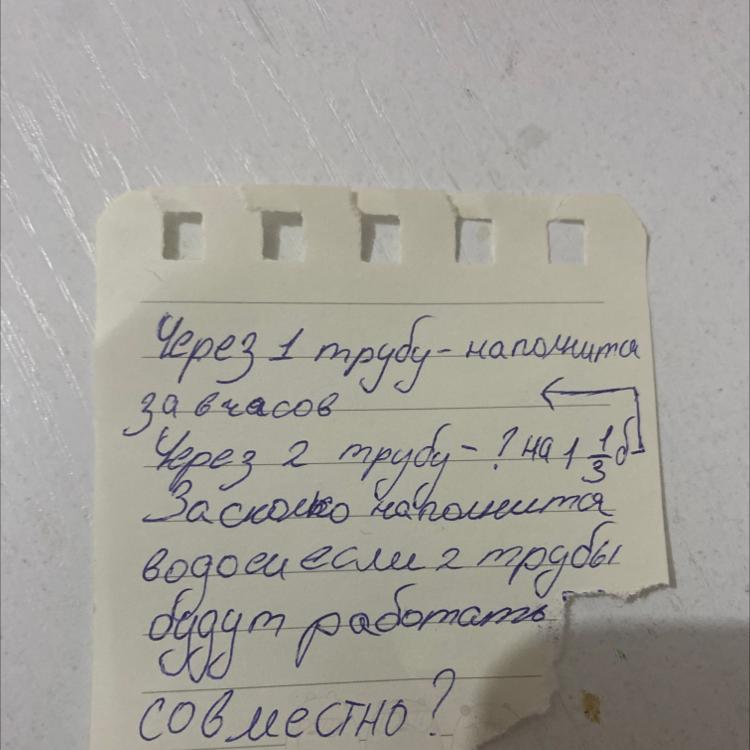 Через 1 трубу - наполнится
за 8 часов
Через 2 трубу - ? на 1 1/3 б
За сколько наполнится
водоем если 2 трубы
будут работать
совместно?